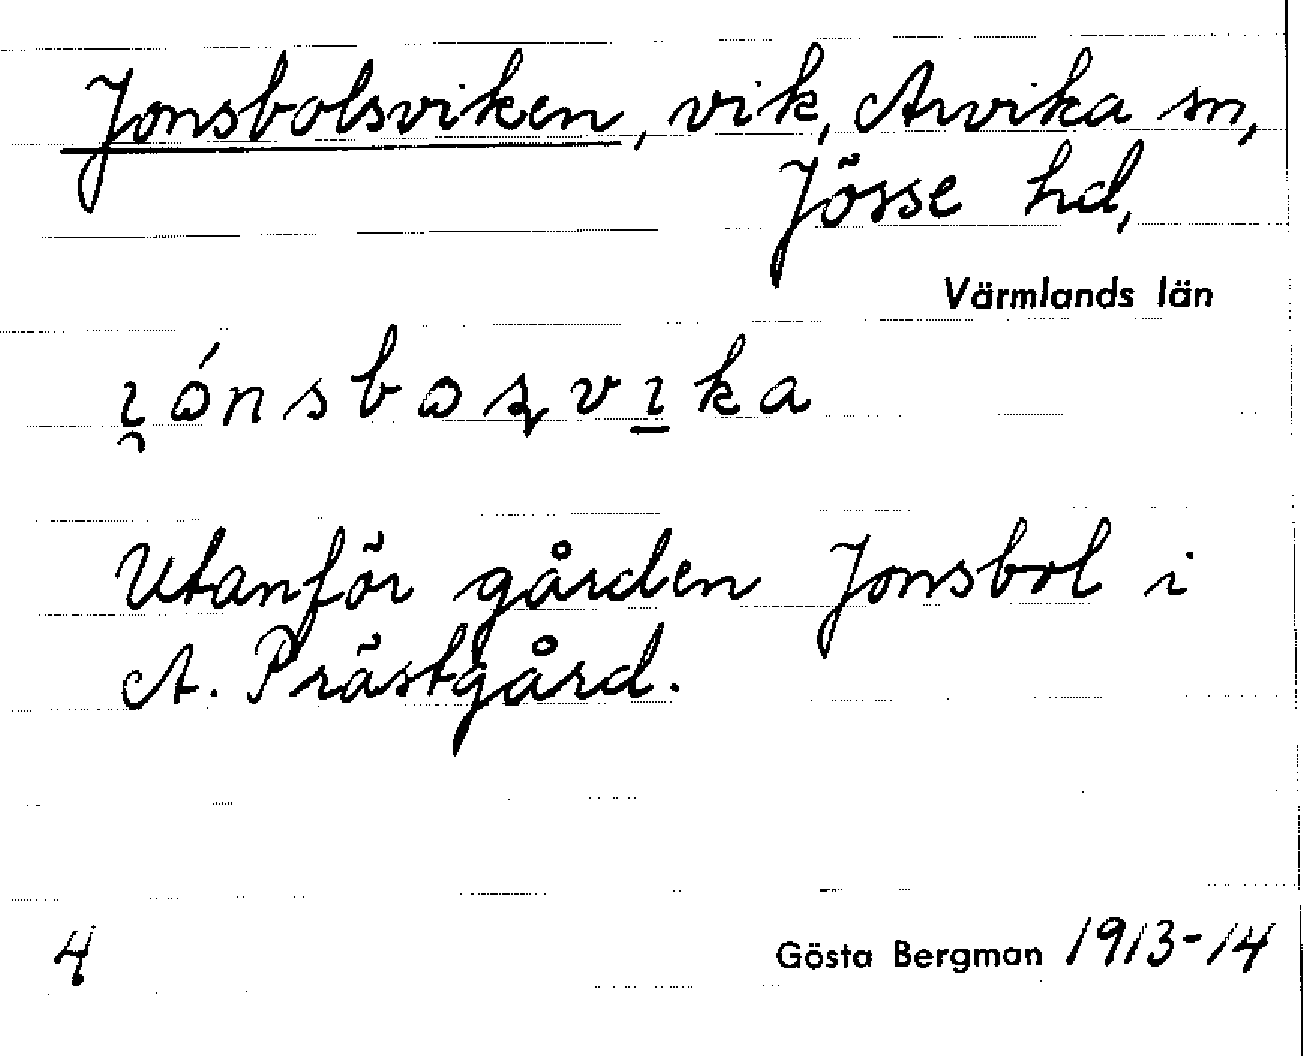 Jonsbolsviken, vik, Arvika sn,
Jösse hd,
Värmlands län
Utanför gården Jonsbol i
A. Prästgård.
4 Gösta Bergman 1913-14